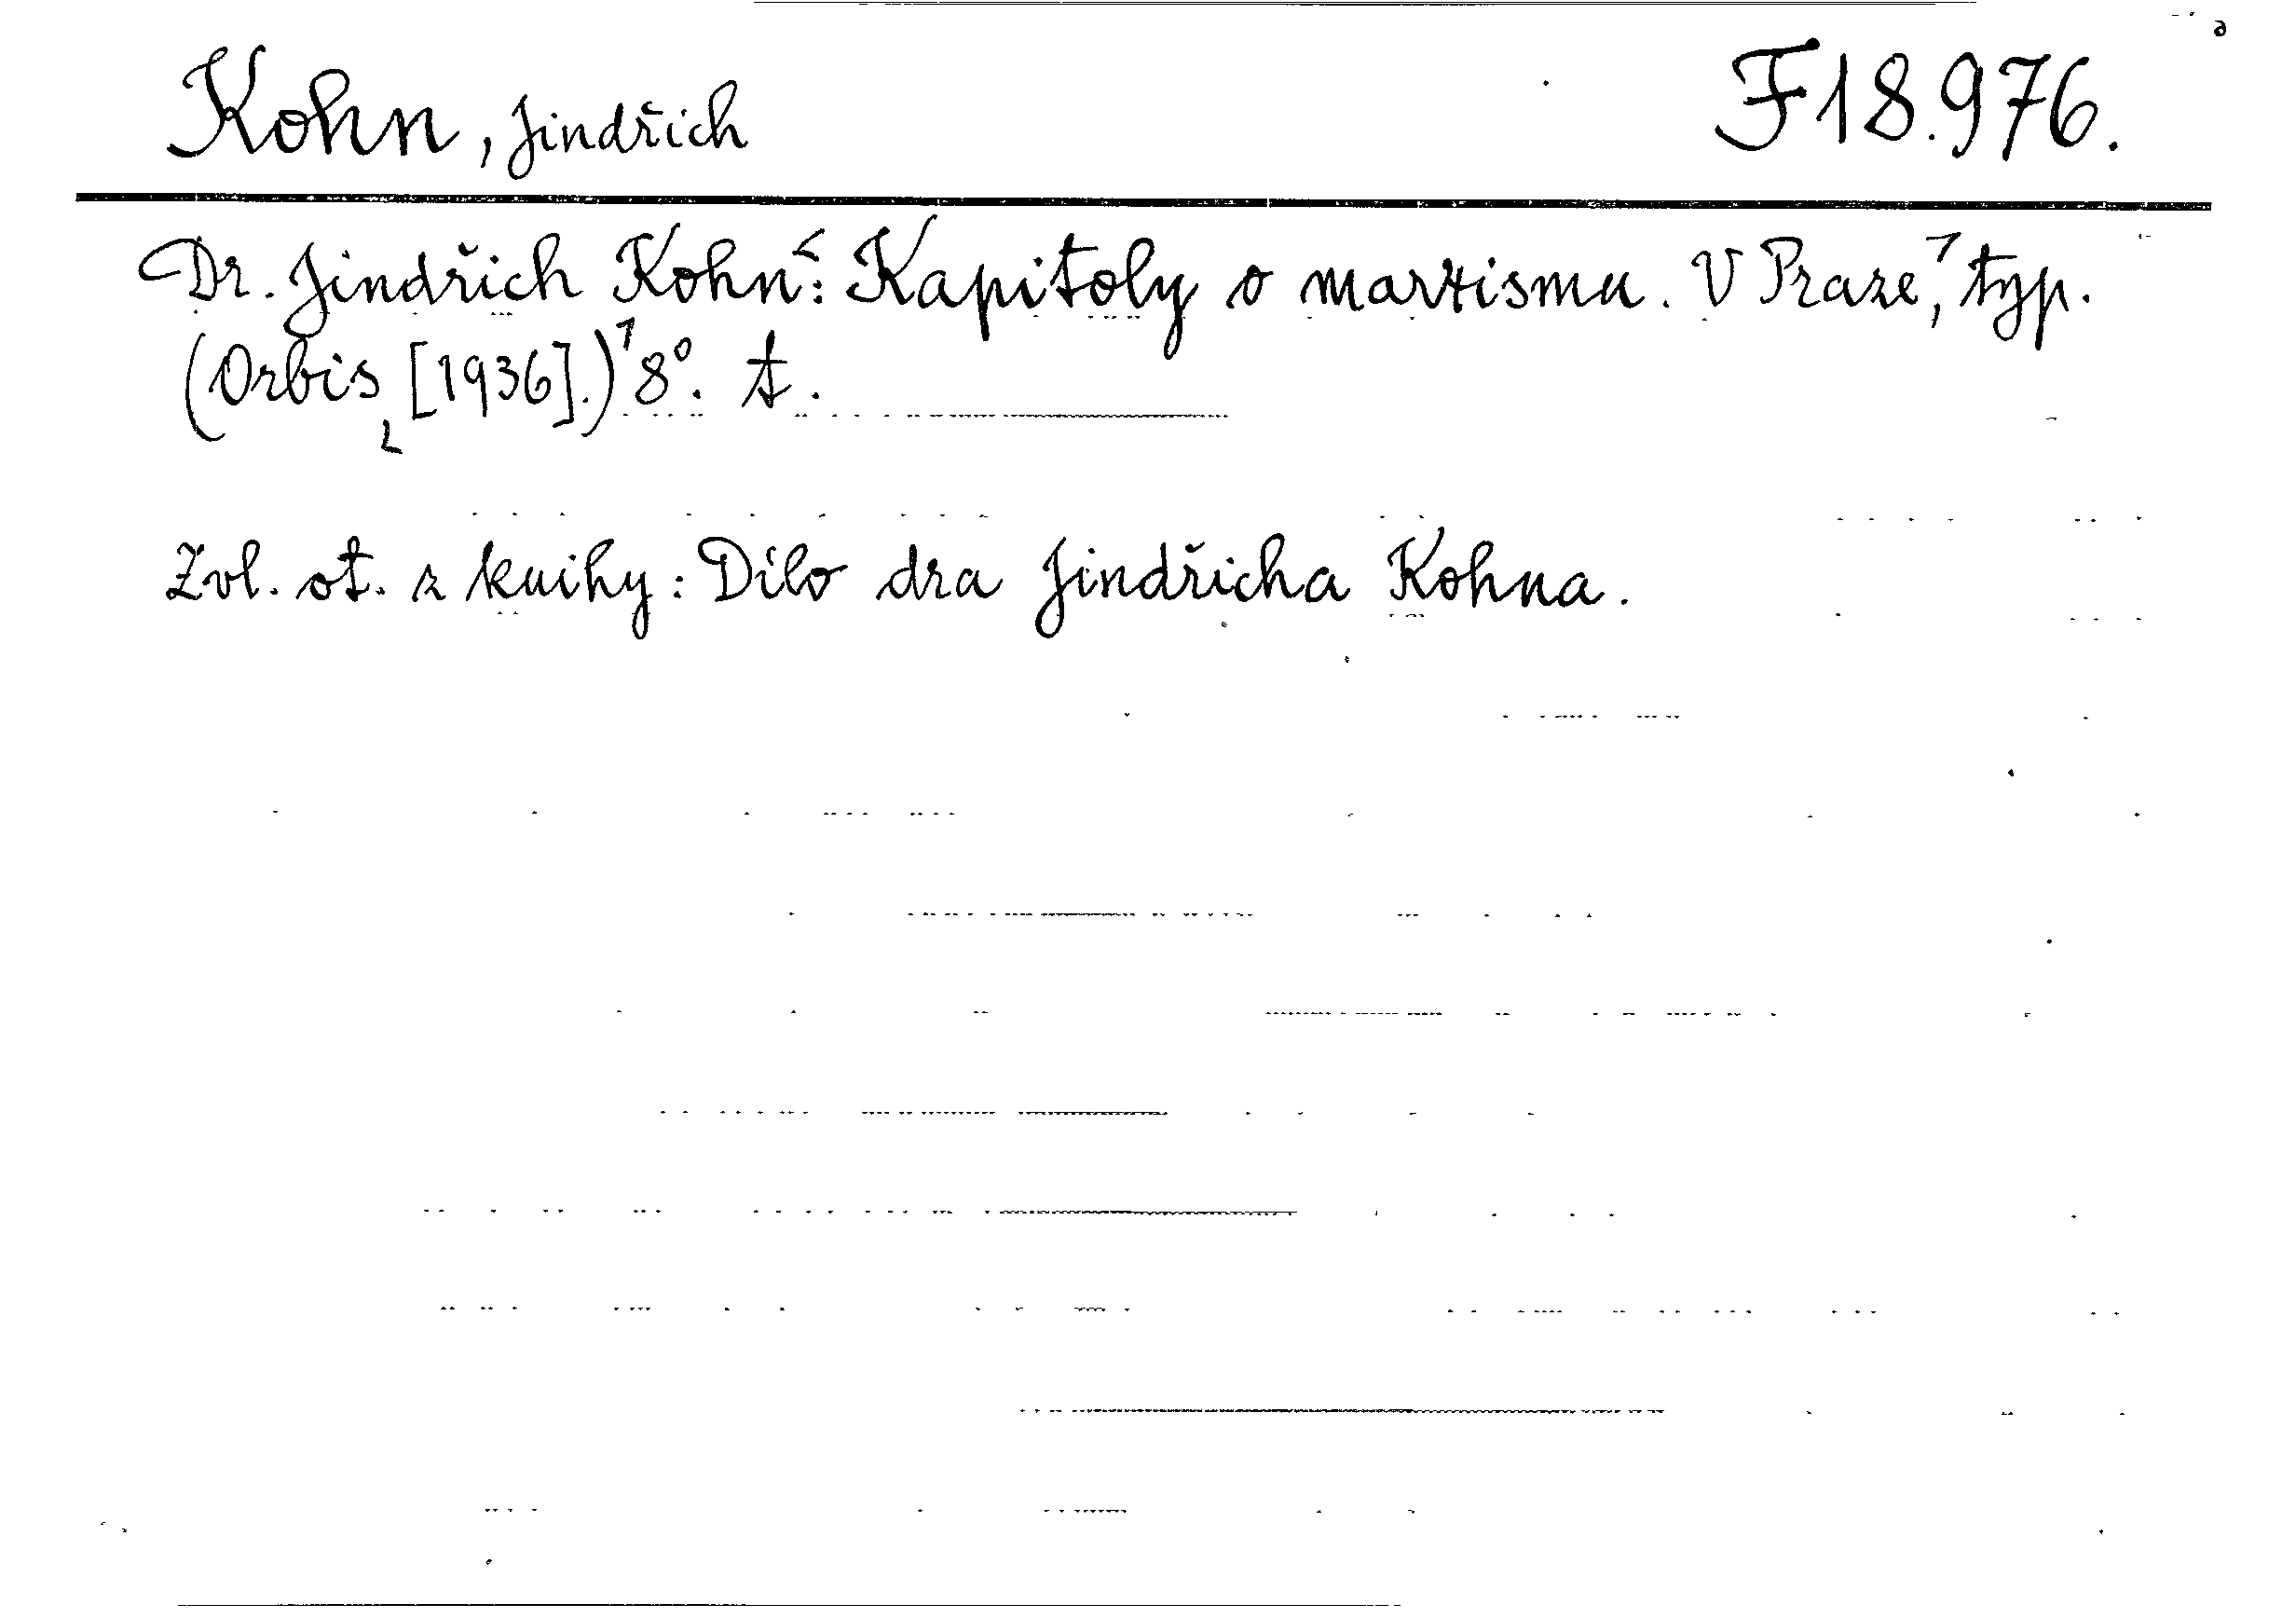 Kohn, Jindřich F18.976.
Dr. Jindřich Kohn: Kapitoly o marxismu. V Praze, typ.
(Orbis, [1936].) 8°. t.
Zvl. ot. z knihy: Dílo dra Jindřicha Kohna.